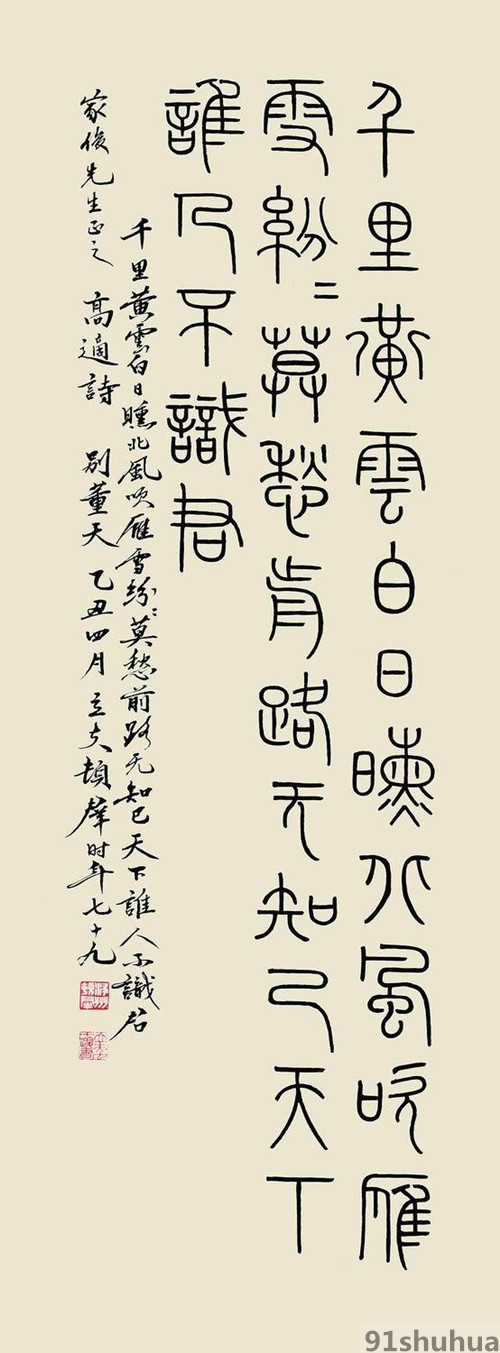 千里黃雲白日曛北風吹雁
雪紛〻莫愁前路无知己天下
誰人不識君
千里黃雲白日曛北風吹雁雪紛〻莫愁前路无知己天下誰人不識君
家俊先生正之 高適詩 別董大 乙丑四月 立夫 时年七十九
91shuhua